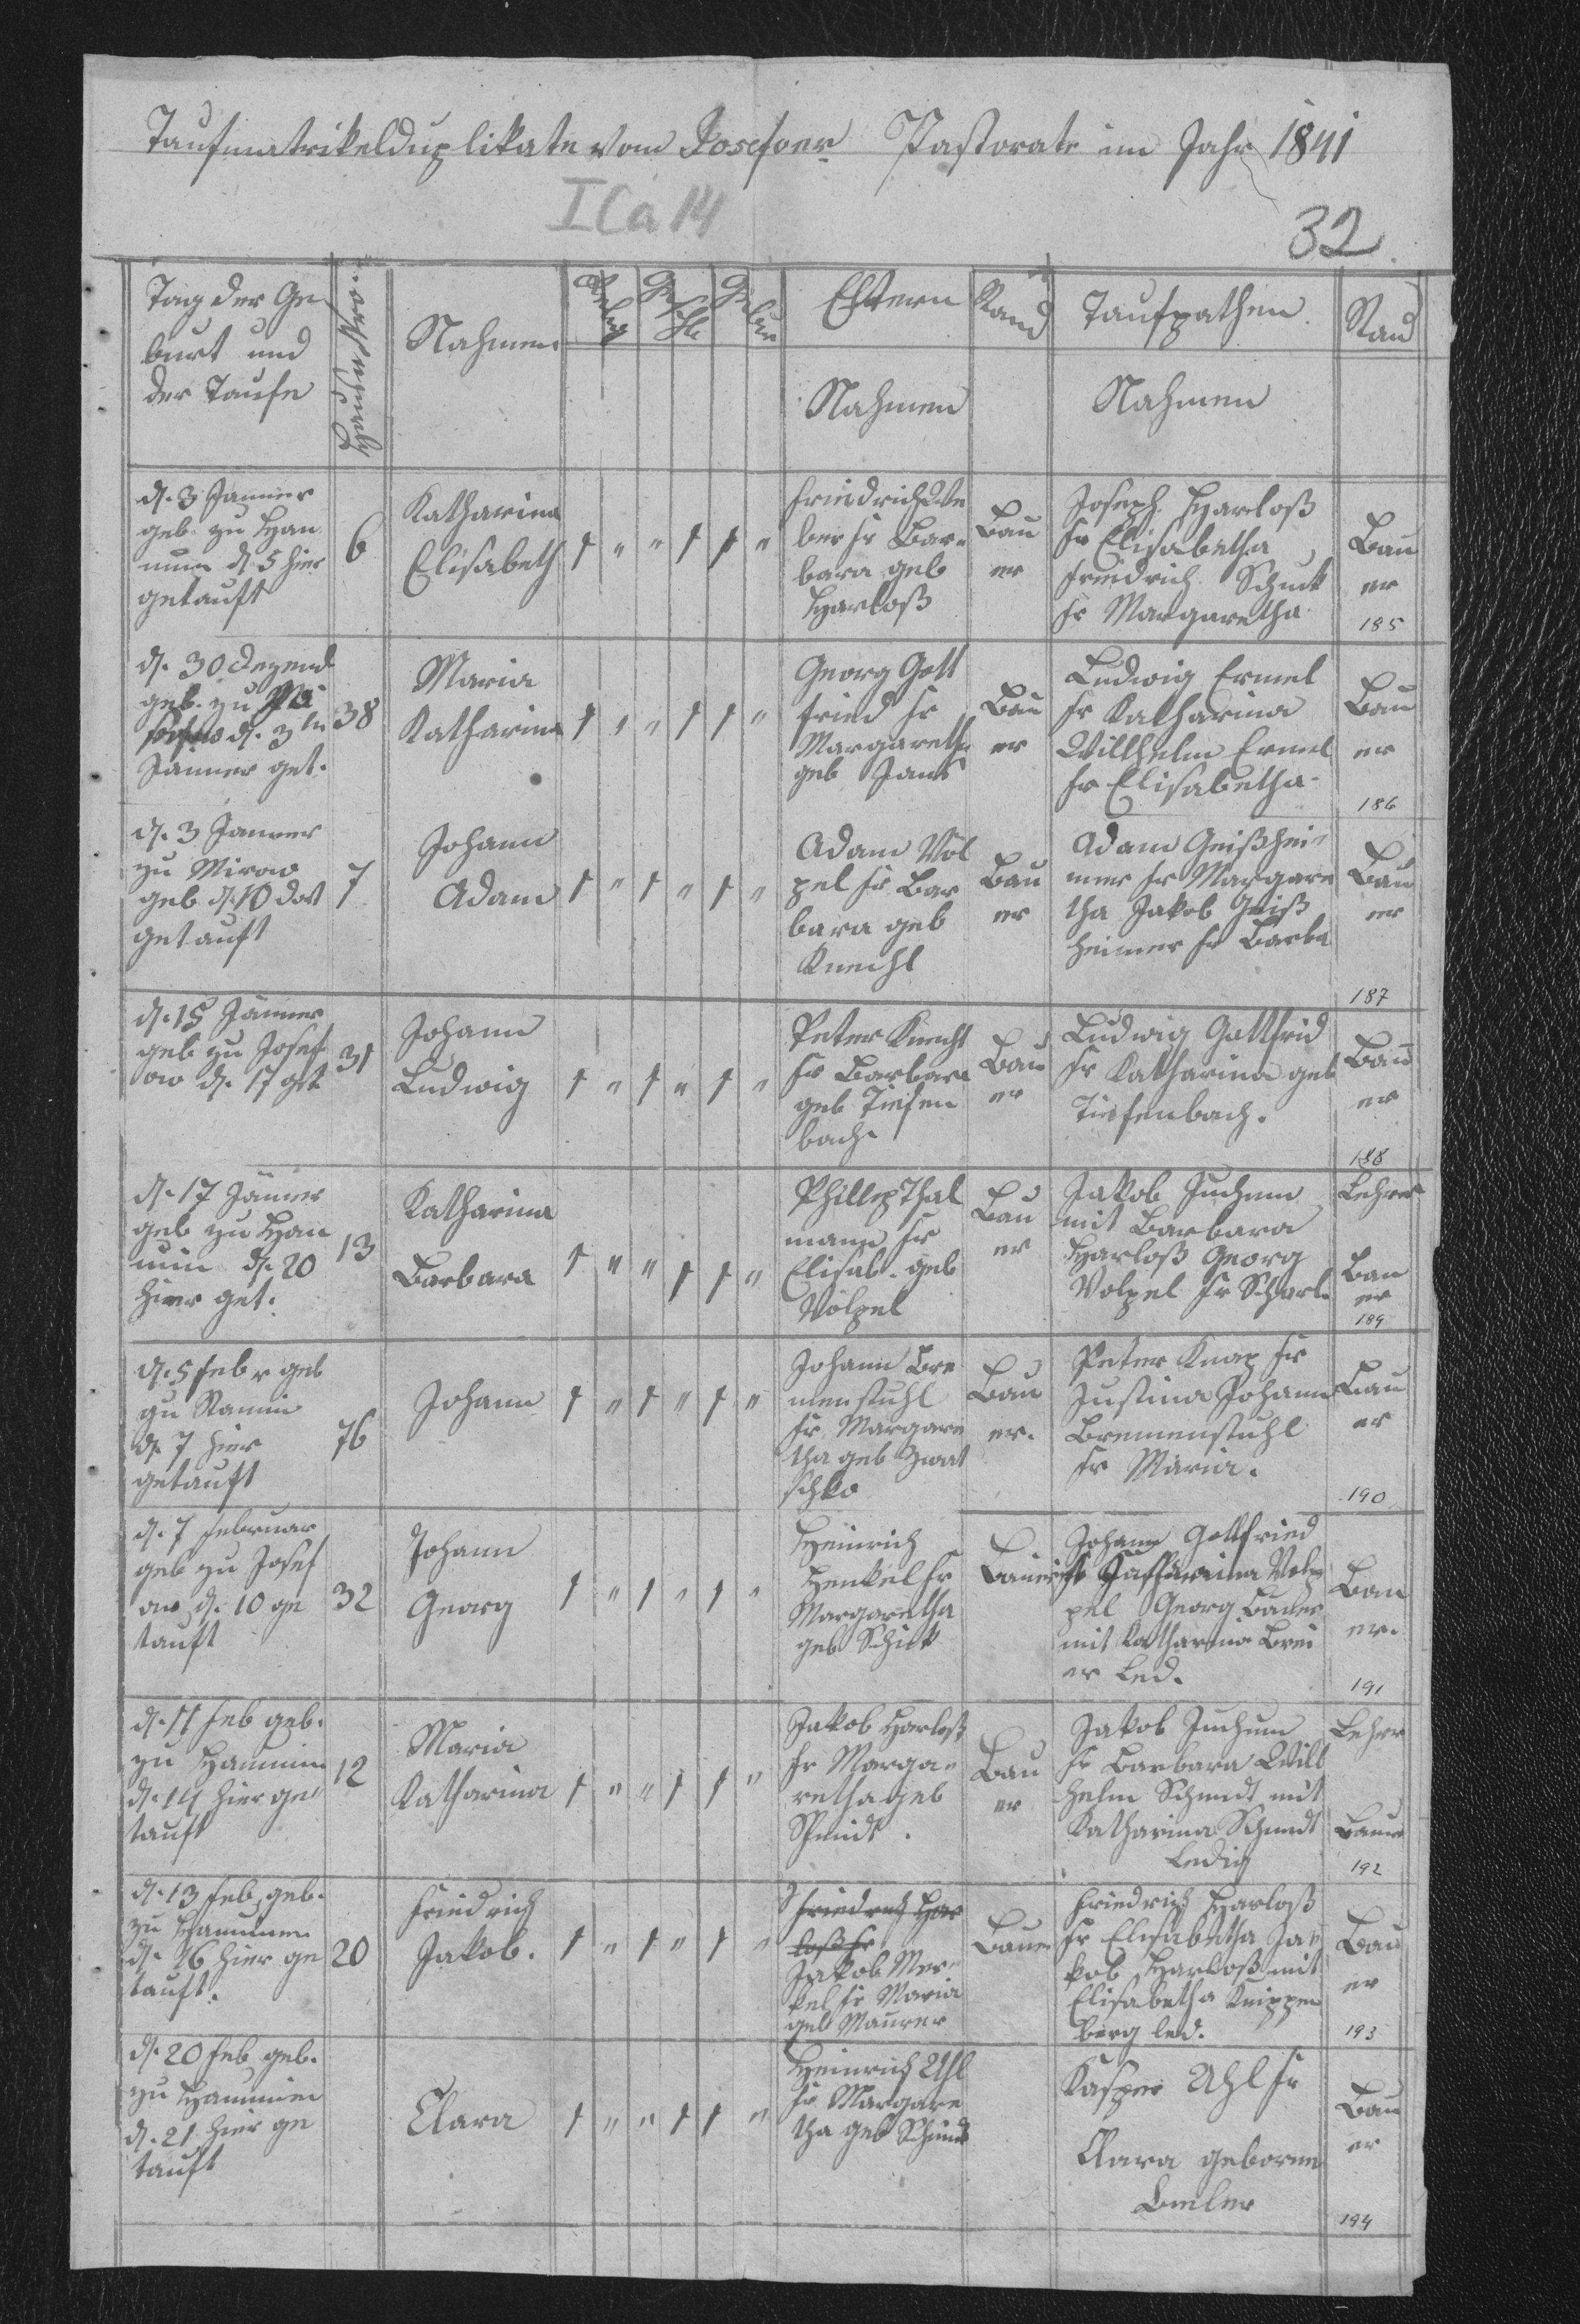 Taufmatrikelduplikate vom Josefower Pastorate im Jahr 1841
I Ca 14
32
Tag der Ge
burt und
der Taufe
Nahmen
Eltern
Nahmen
Stand
Taufpathen
Nahmen
Stand
d. 3 Jänner
geb. zu Han
nun d. 5 hier
getauft
6
Katharina
Elisabeth
1 " " 1 1 "
Friedrich We
ber fr Bar-
bara geb
Harloß
Bau
er
Joseph Harloß
fr Elisabetha
Friedrich Schuck
fr Margaretha
Bau
er
185
d. 30 Dezemb
geb. zu
d. 3tn
Jänner get.
38
Maria
Katharina
1 " " 1 1 "
Georg Gott
fried fr
Margareth
geb Jans
Bau
er
Ludwig Ermel
fr Katharina
Willhelm Ermel
fr Elisabetha
Bau
er
186
d. 3 Jänner
zu Mirow
geb d. 10 dort
getauft
7
Johann
Adam
1 " 1 " 1 "
Adam Völ
pel fr Bar
bara geb
Knecht
Bau
er
Adam Geißhei-
mer fr Margare
tha Jakob Geiß
heimer fr Barba
Bau
er
187
d. 15 Jänner
geb zu Josef
ow d. 17 get
31
Johann
Ludwig
1 " 1 " 1 "
Peter Knecht
fr Barbara
geb Tiefen
bach
Bau
er
Ludwig Gottfrid
fr Katharina geb
Tiefenbach.
Bau
er
188
d. 17 Jänner
geb zu Han
nun d. 20
hier get.
13
Katharina
Barbara
1 " " 1 1 "
Phillip Thal
mann fr
Elisab. geb
Völpel
Bau
er
Jakob Juchum
mit Barbara
Harloß Georg
Volpel fr Scharl.
Lehrer
Bau
er
189
d. 5 Febr geb
zu Stanin
d. 7 hier
getauft
76
Johann
1 " 1 " 1 "
Johann Bre
menstuhl
fr Margare
tha geb Zwat
schko
Bau
er.
Peter Knap fr
Justina Johann
Bremenstuhl
fr Maria.
Bau
er
190
d. 7 Februar
geb zu Josef
ow d. 10 ge
tauft
32
Johann
Georg
1 " 1 " 1 "
Heinrich
Henkel fr
Margaretha
geb Schick
Bauer
Johann Gottfried
fr Katharina Volp
pel Georg Bauer
mit Katharina Brei
er Led.
Bau
er.
191
d. 11 Feb geb.
zu Hannun
d. 14 hier ge
tauft
12
Maria
Katharina
1 " " 1 1 "
Jakob Harloß
fr Marga-
retha geb
Schmidt.
Bau
er
Jakob Juchum
fr Barbara Will
helm Schmidt mit
Katharina Schmidt
Ledig
Lehrer
Bauer
192
d. 13 Feb. geb.
zu Hannun
d. 16 hier ge
tauft.
20
Friedrich
Jakob.
1 " 1 " 1 "
Friedrich Har
loß fr
Jakob Mer-
kel fr Maria
geb Maurer
Bauer
Friedrich Harloß
fr Elisabetha Ja-
kob Harloß mit
Elisabetha Knippen
berg led.
Bau
er
193
d. 20 Feb. geb.
zu Hannun
d. 21 hier ge
tauft
Clara
1 " " 1 1 "
Heinrich Uhl
fr Margare
tha geb Schmidt
Kasper Uhl fr
Clara geborne
Bau
er
194